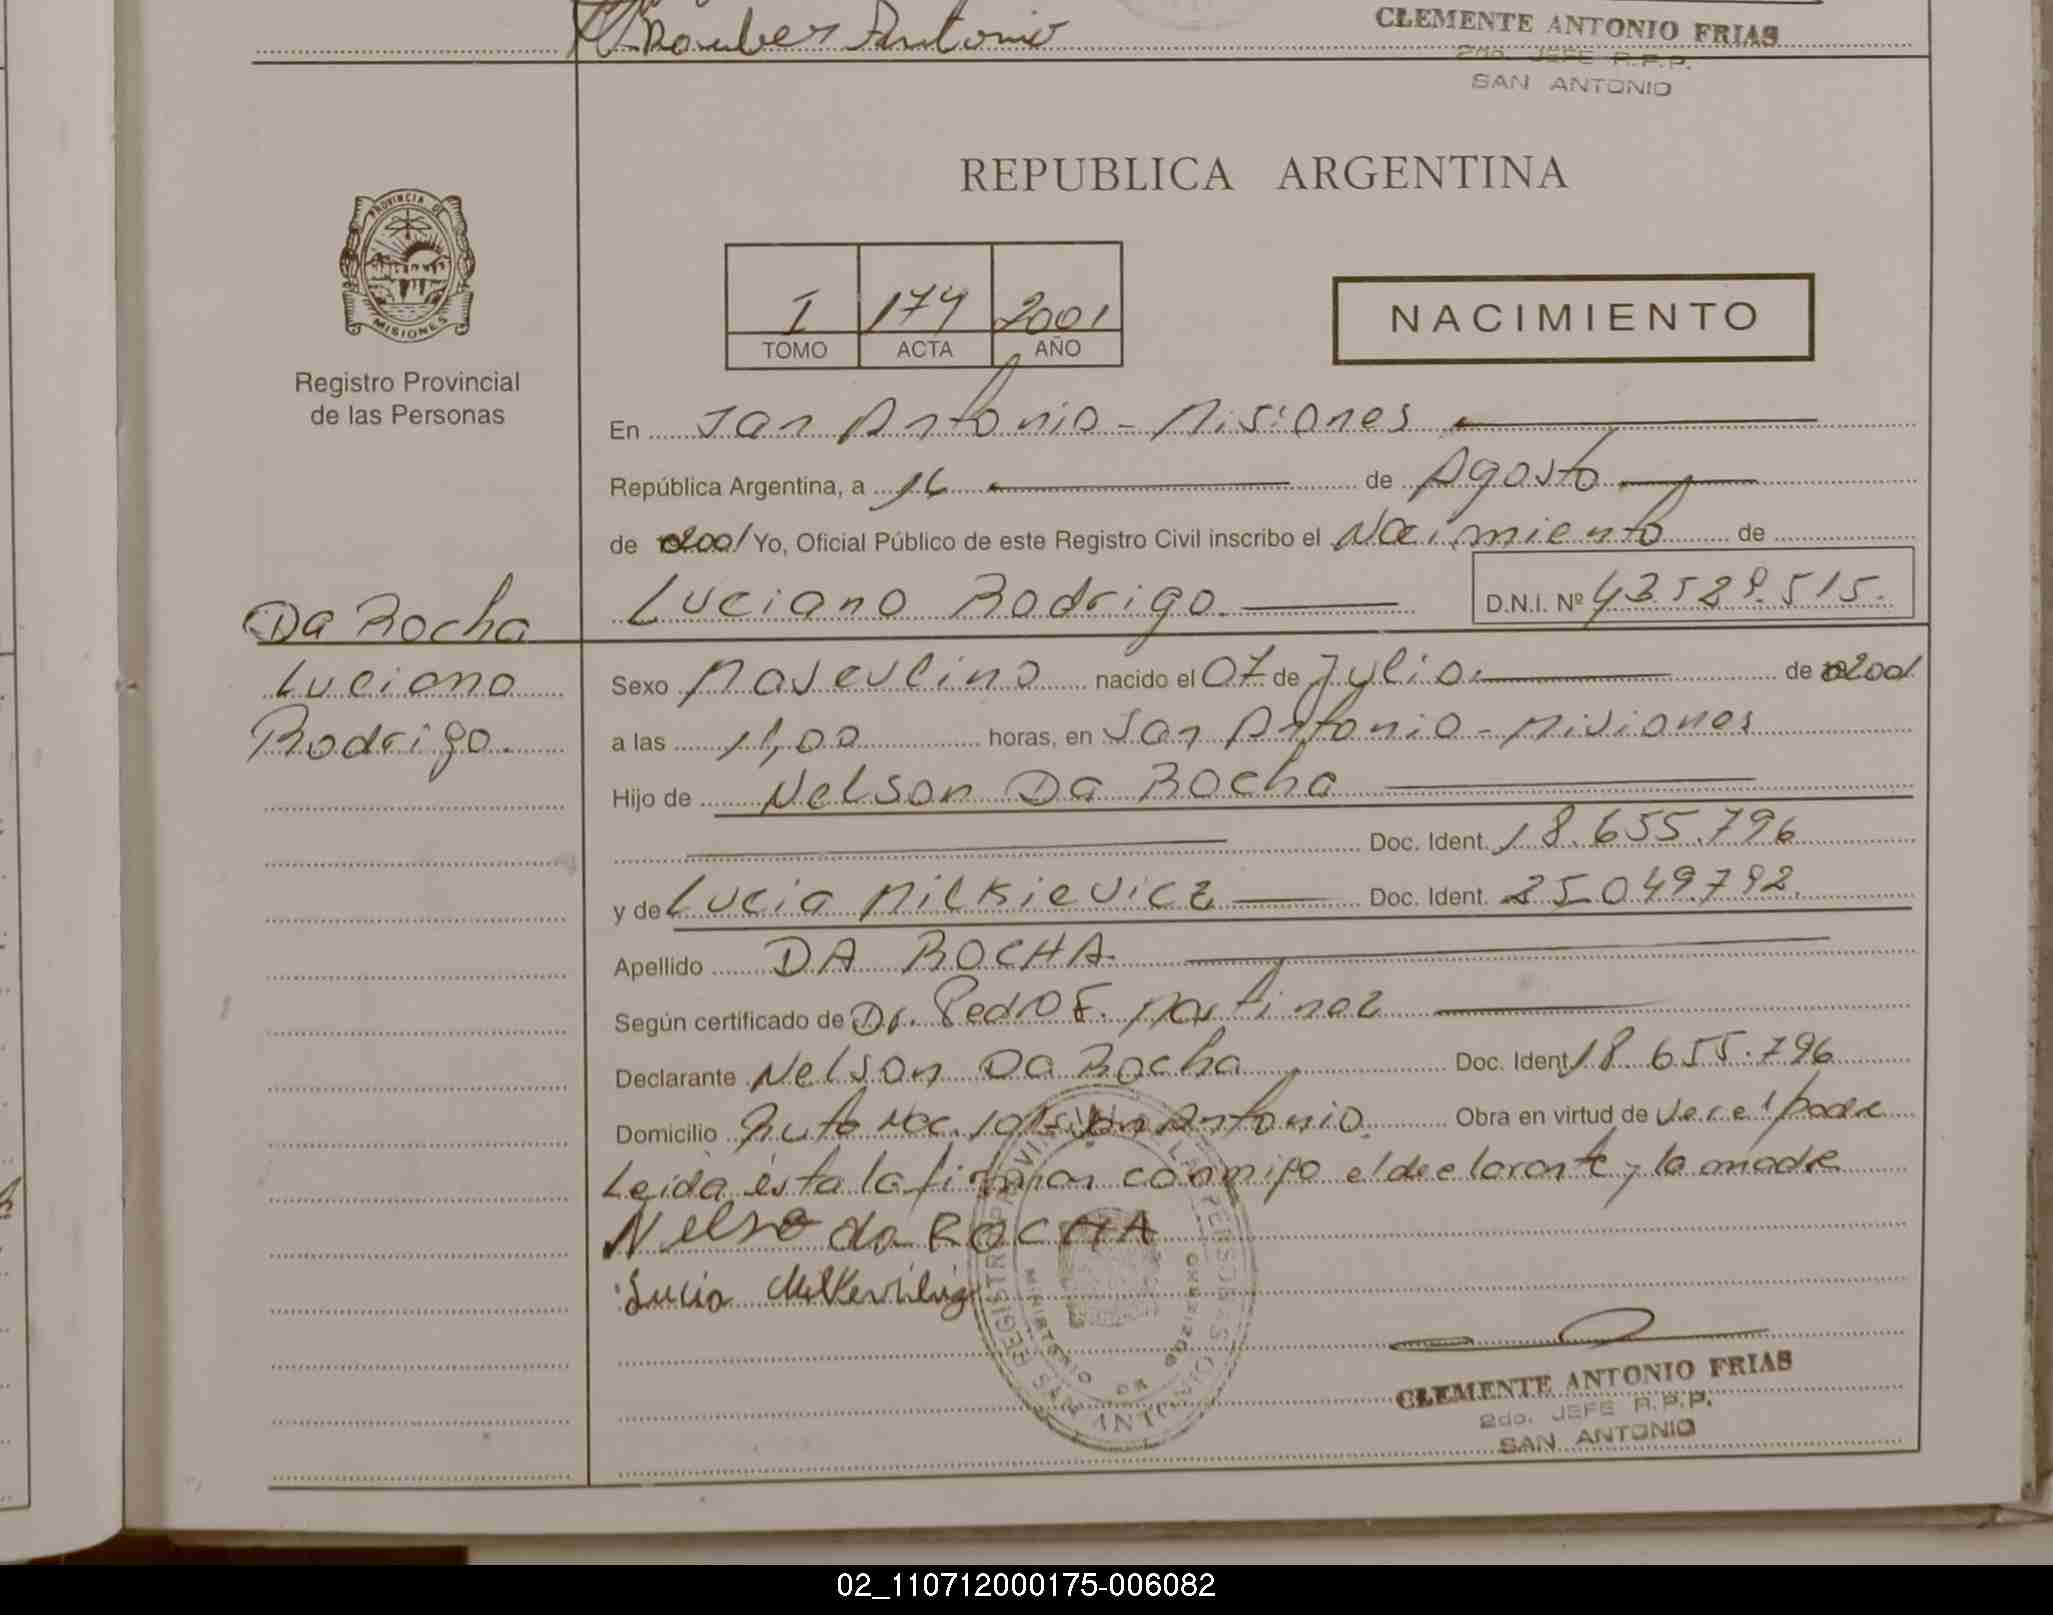 Antonio
CLEMENTE ANTONIO FRIAS
2do. JEFE R.P.P.
SAN ANTONIO
PROVINCIA DE
MISIONES
Registro Provincial
de las Personas
REPUBLICA ARGENTINA
I 174 2001
TOMO ACTA AÑO
NACIMIENTO
En San Antonio - Misiones
República Argentina, a 16 de Agosto
de 2001 Yo, Oficial Público de este Registro Civil inscribo el Nacimiento de
Luciano Rodrigo. D.N.I. Nº 43.529.515.
Da Rocha
Luciano
Rodrigo.
Sexo Masculino nacido el 07 de Julio. de 2001
a las 11,00 horas, en San Antonio - Misiones
Hijo de Nelson Da Rocha
Doc. Ident. 18.655.796
y de Lucia Milkievicz Doc. Ident. 25.049.792.
Apellido DA ROCHA.
Según certificado de Dr. Pedro E. Martinez
Declarante Nelson Da Rocha Doc. Ident 18.655.796
Domicilio Ruta Nac. 101 - San Antonio. Obra en virtud de ser el padre
Leida ésta la firman conmigo el declarante y la madre
Nelso da ROCHA
Lucia
REGISTRO PROVINCIAL DE LAS PERSONAS
MINISTERIO DE GOBIERNO
SAN ANTONIO
CLEMENTE ANTONIO FRIAS
2do. JEFE R.P.P.
SAN ANTONIO
02_110712000175-006082